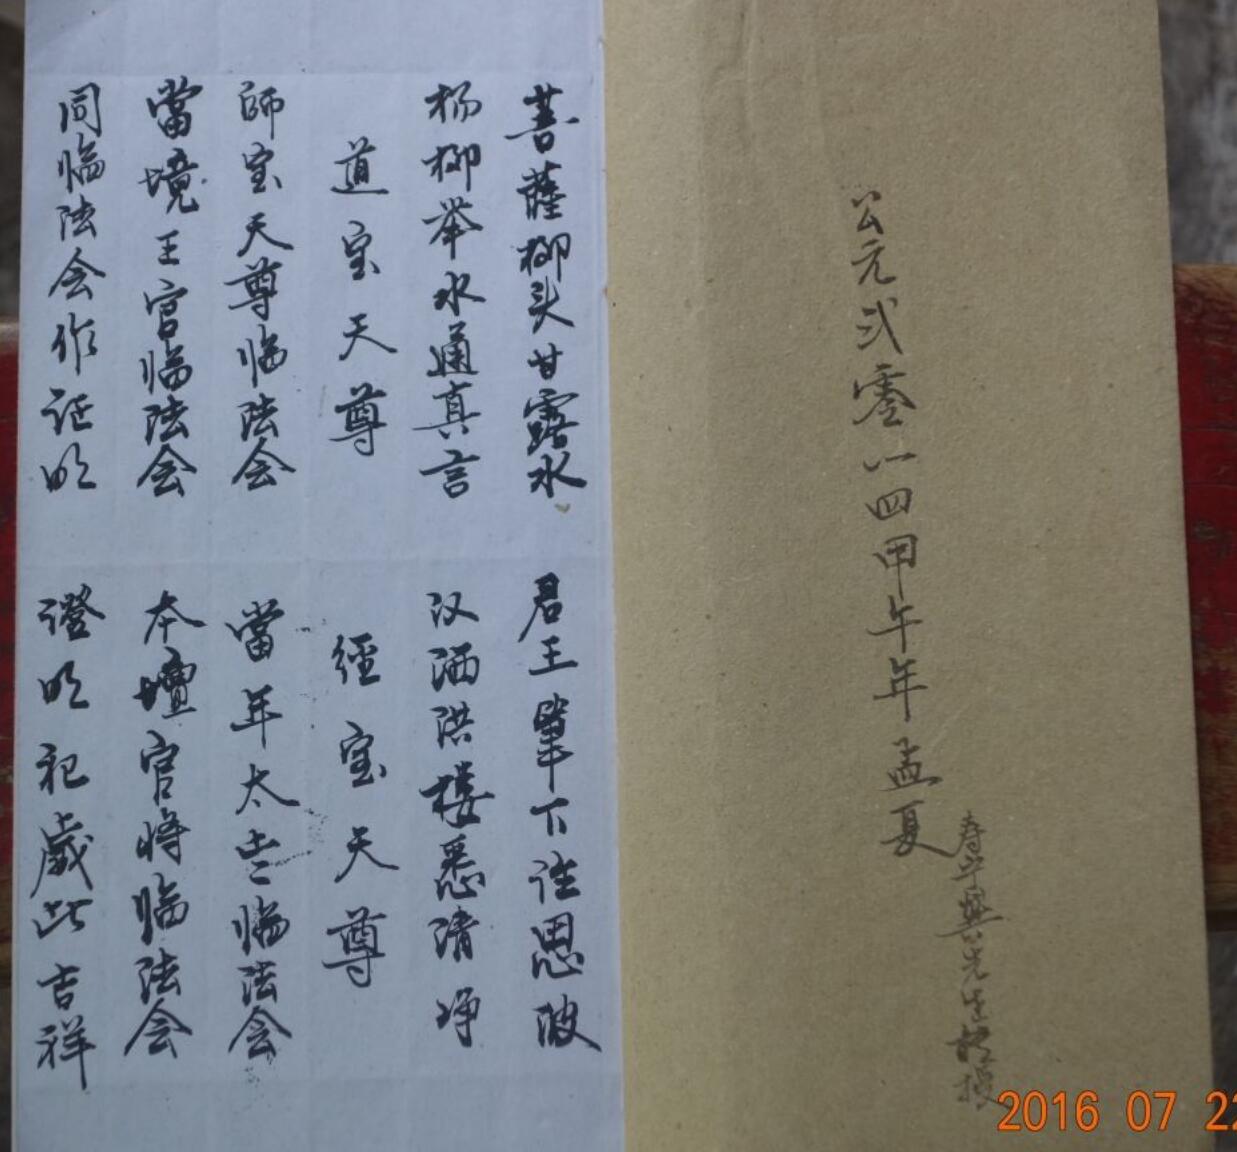 公元弍零一四甲午年孟夏
寿年興先生授
菩薩柳头甘露水
君王筆下注恩波
杨柳举水通真言
汉洒洪楼悉清净
道宝天尊
經宝天尊
師宝天尊临法会
當年太岁临法会
當境王官临法会
本壇官将临法会
同临法会作证明
證明祀歲此吉祥
2016 07 22